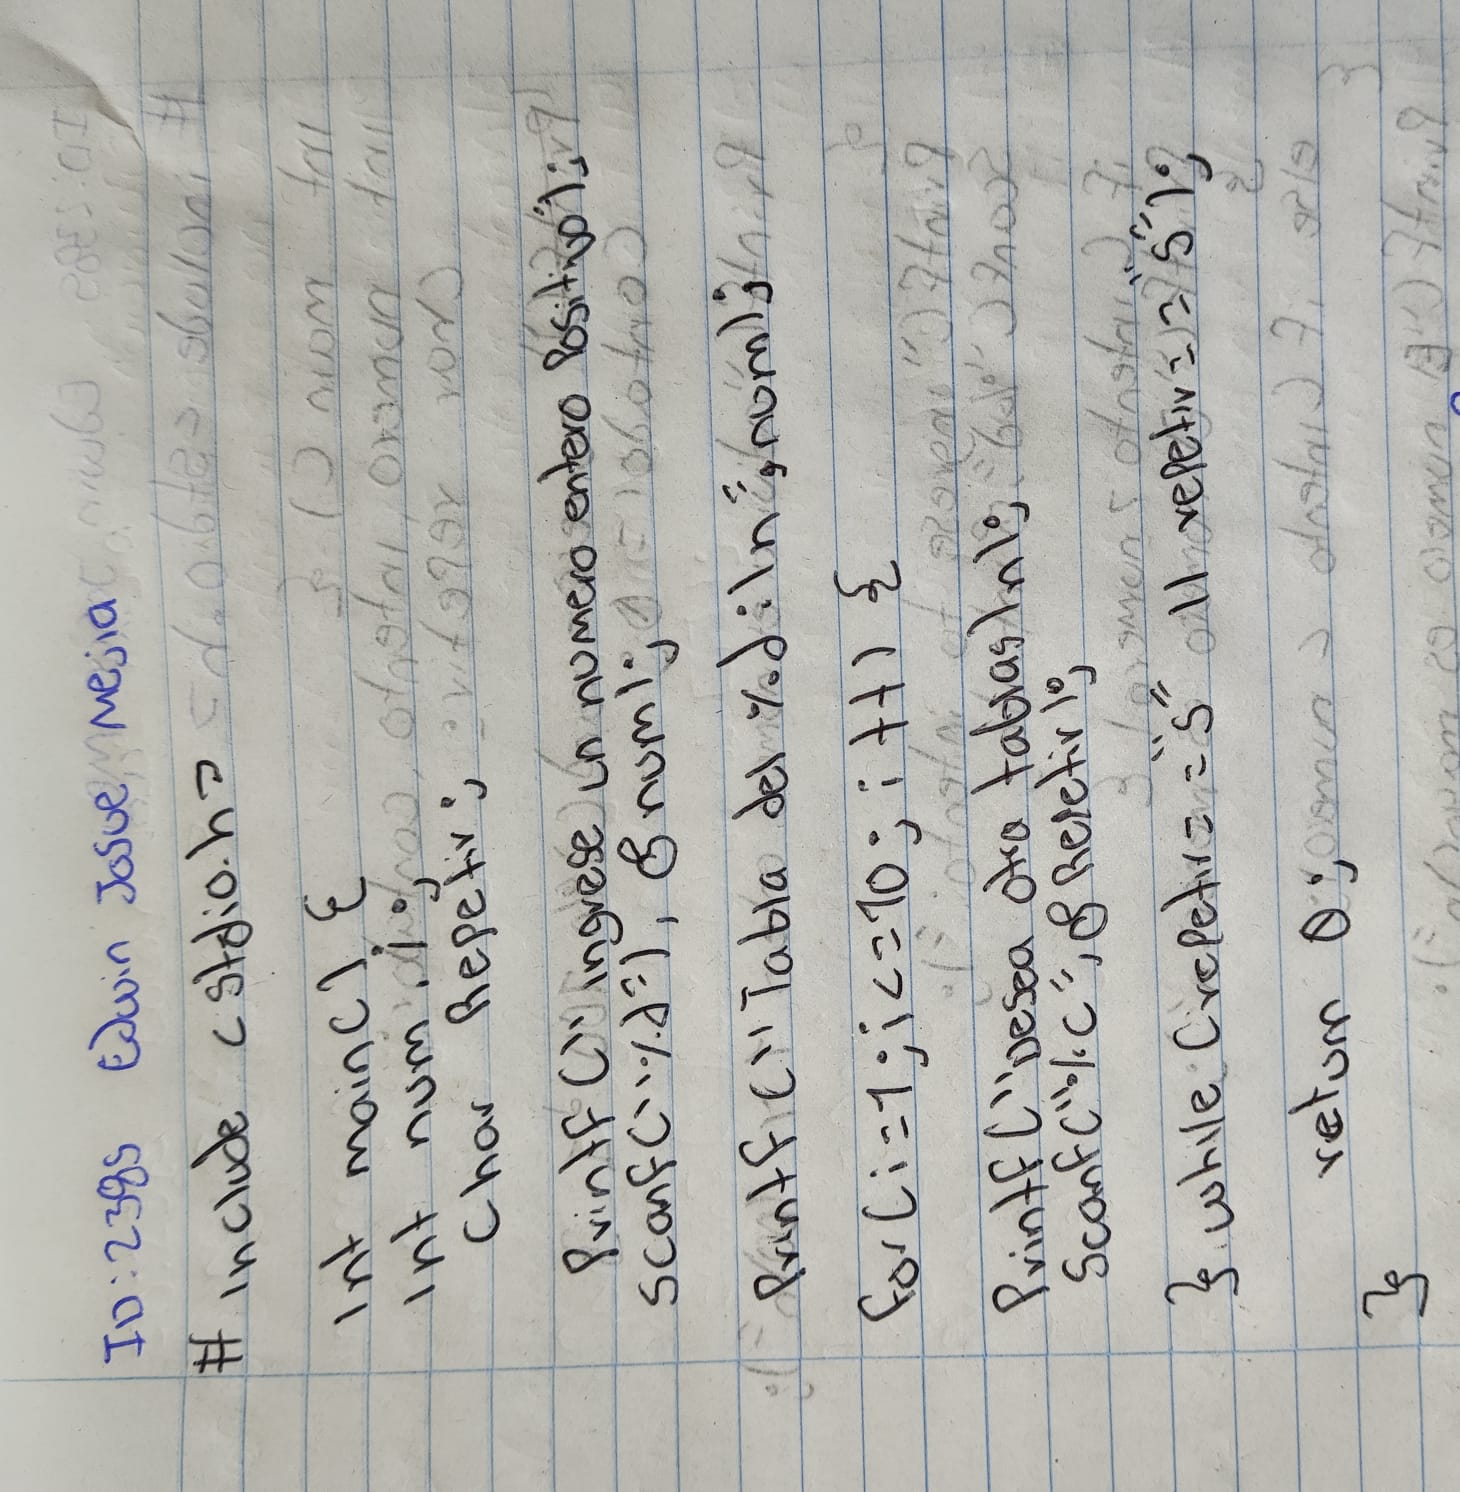 ID: 2385 Edwin Josue Mejia
# include <stdio.h>
int main() {
int num, i;
char Repetir;
Printf ("ingrese un numero entero Positivo");
Scanf("%d"), & num);
Printf ("Tabla del %d:\n", num);
for (i=1; i<=10; i++) {
Printf ("Desea otra tablas\n);
Scanf("%c", & Repetir);
} while (repetir=="s" || repetir=="S");
return 0;
}